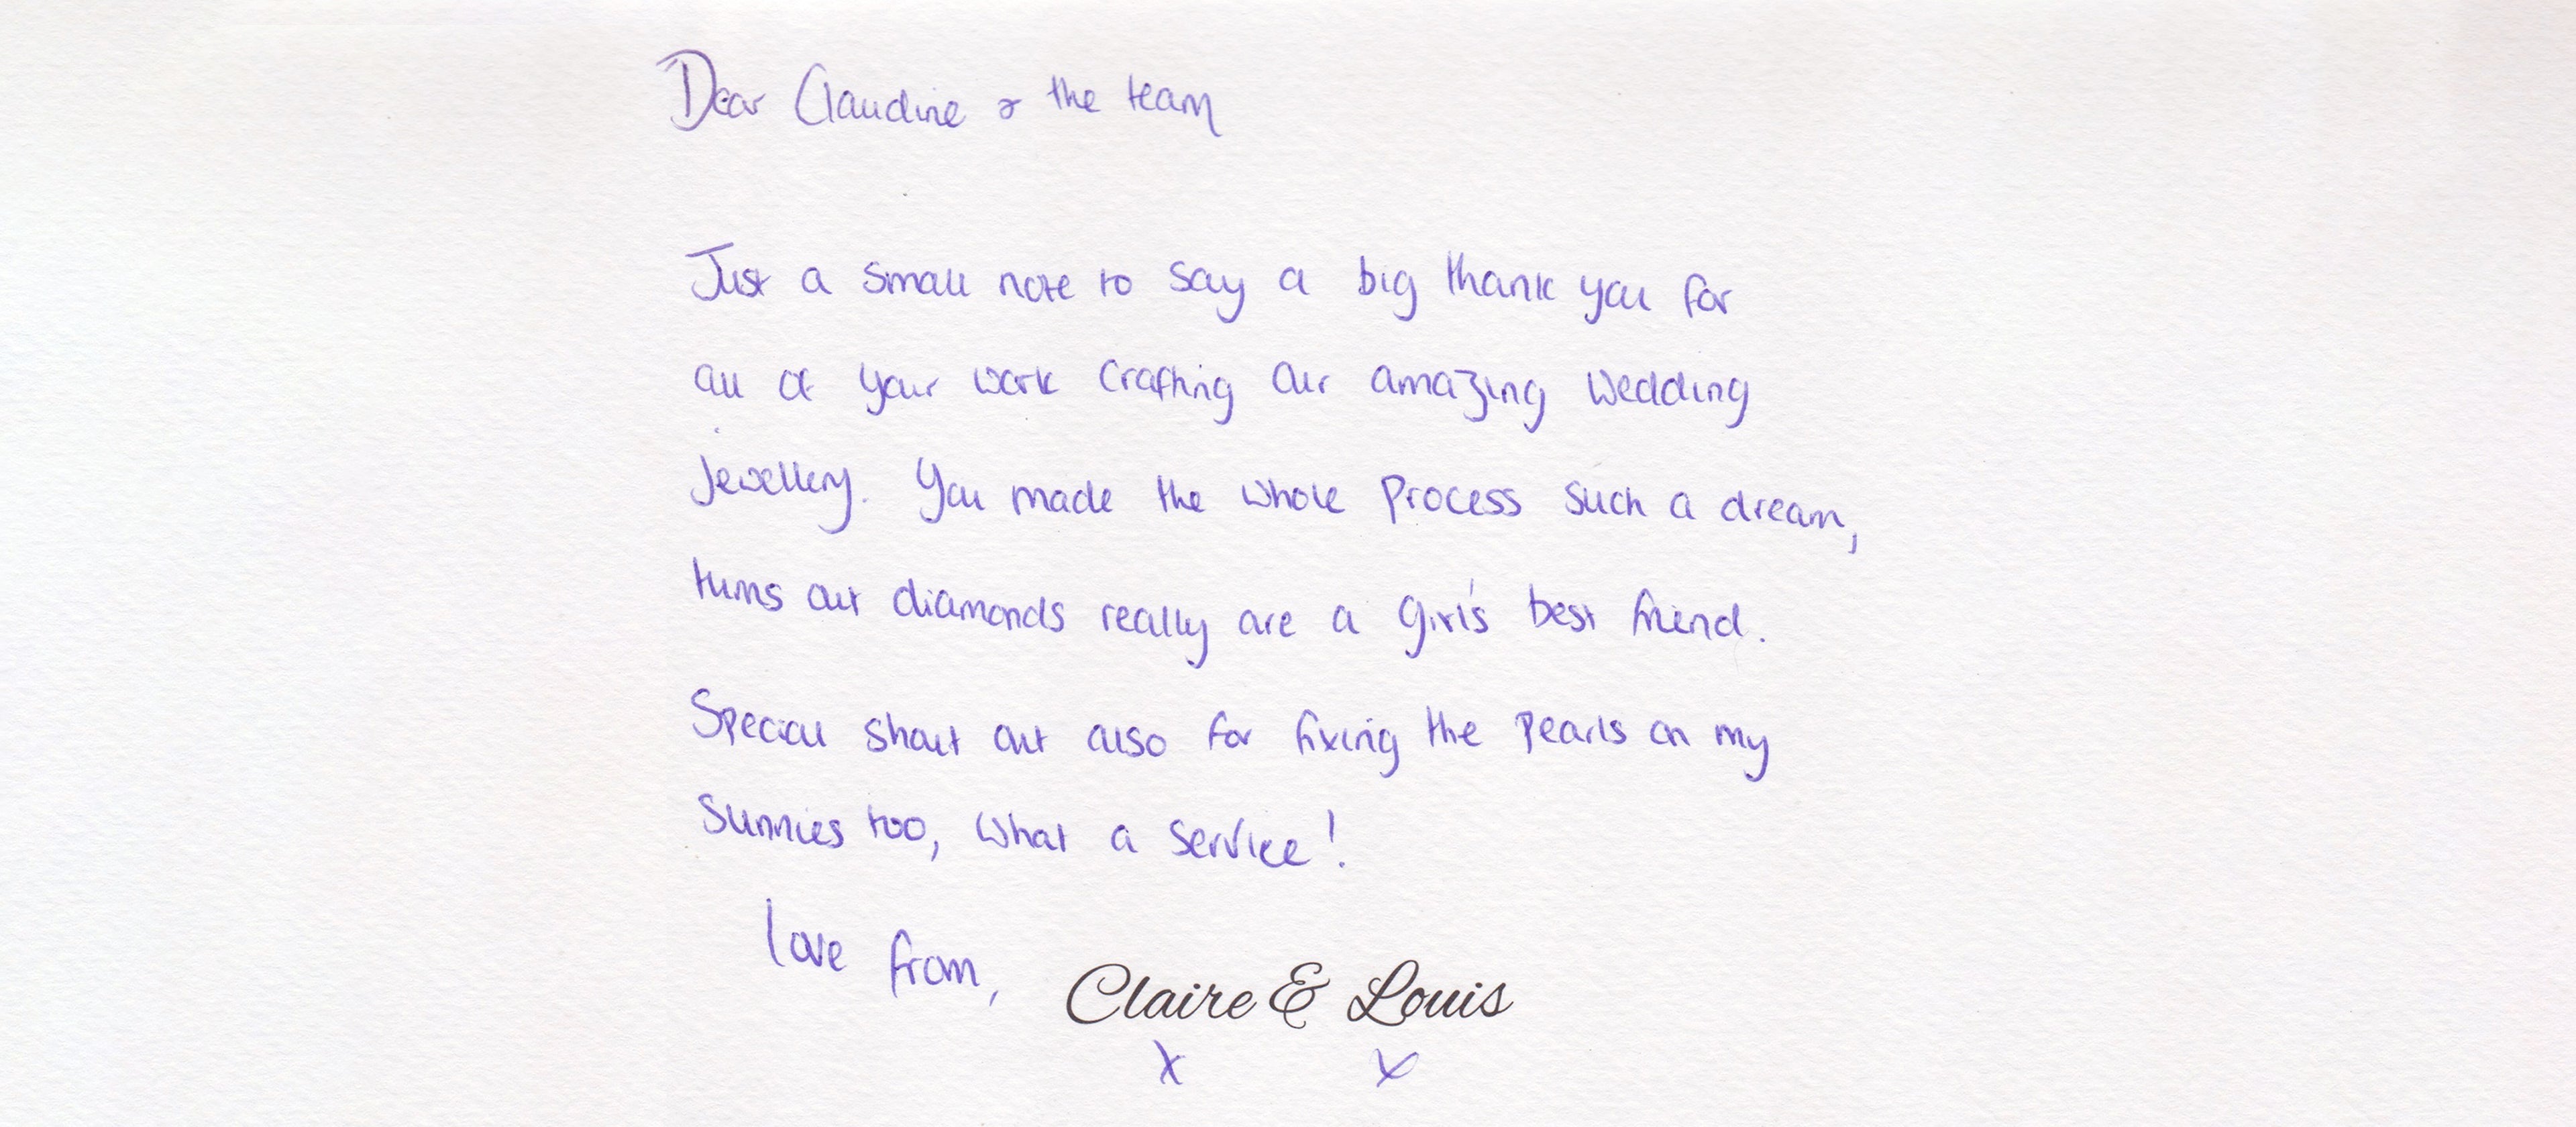 Dear Claudine & the team
Just a small note to say a big thank you for
all of your work crafting our amazing wedding
jewellery. You made the whole process such a dream,
turns out diamonds really are a girl's best friend.
Special shout out also for fixing the pearls on my
sunnies too, what a service!
love from,
Claire & Louis
x x